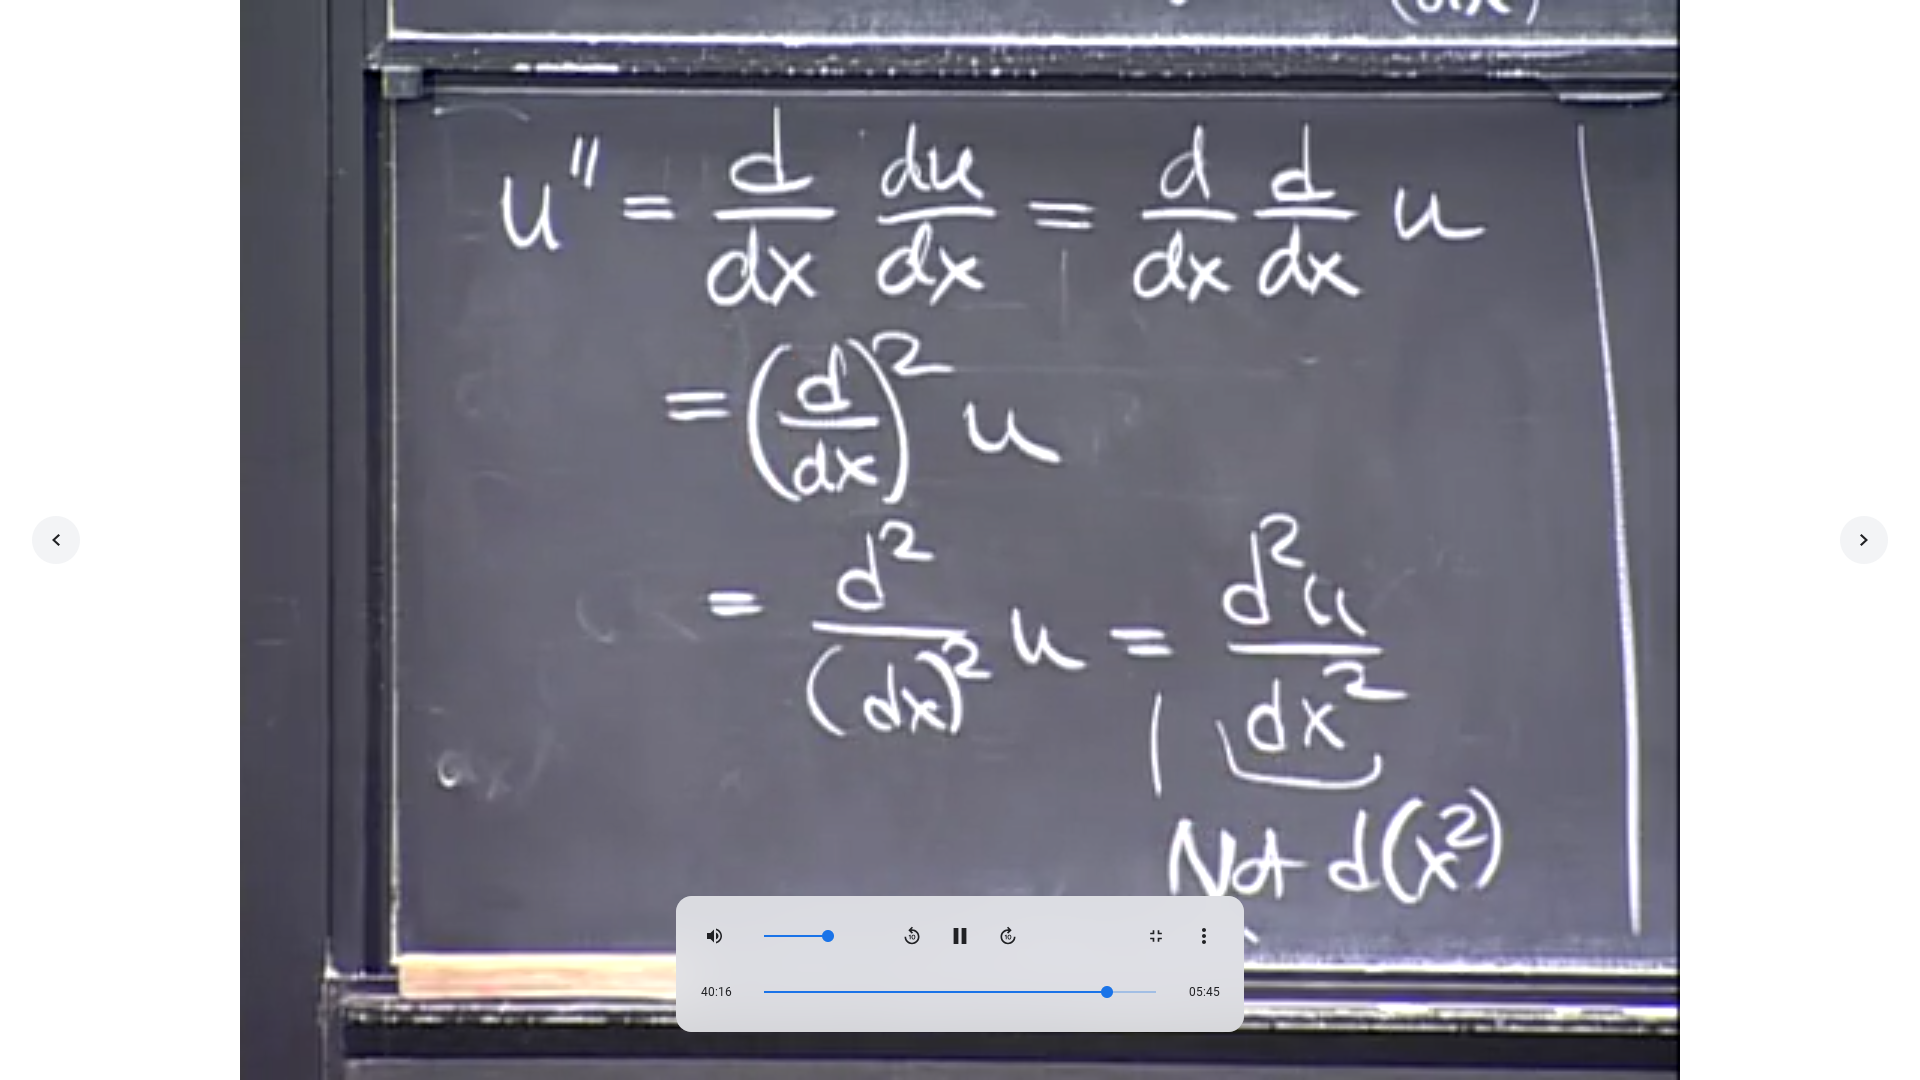 (dx)
u'' = d/dx du/dx = d/dx d/dx u
= (d/dx)² u
= d²/(dx)² u = d²u/dx²
Not d(x²)
ax
10 10
40:16 05:45